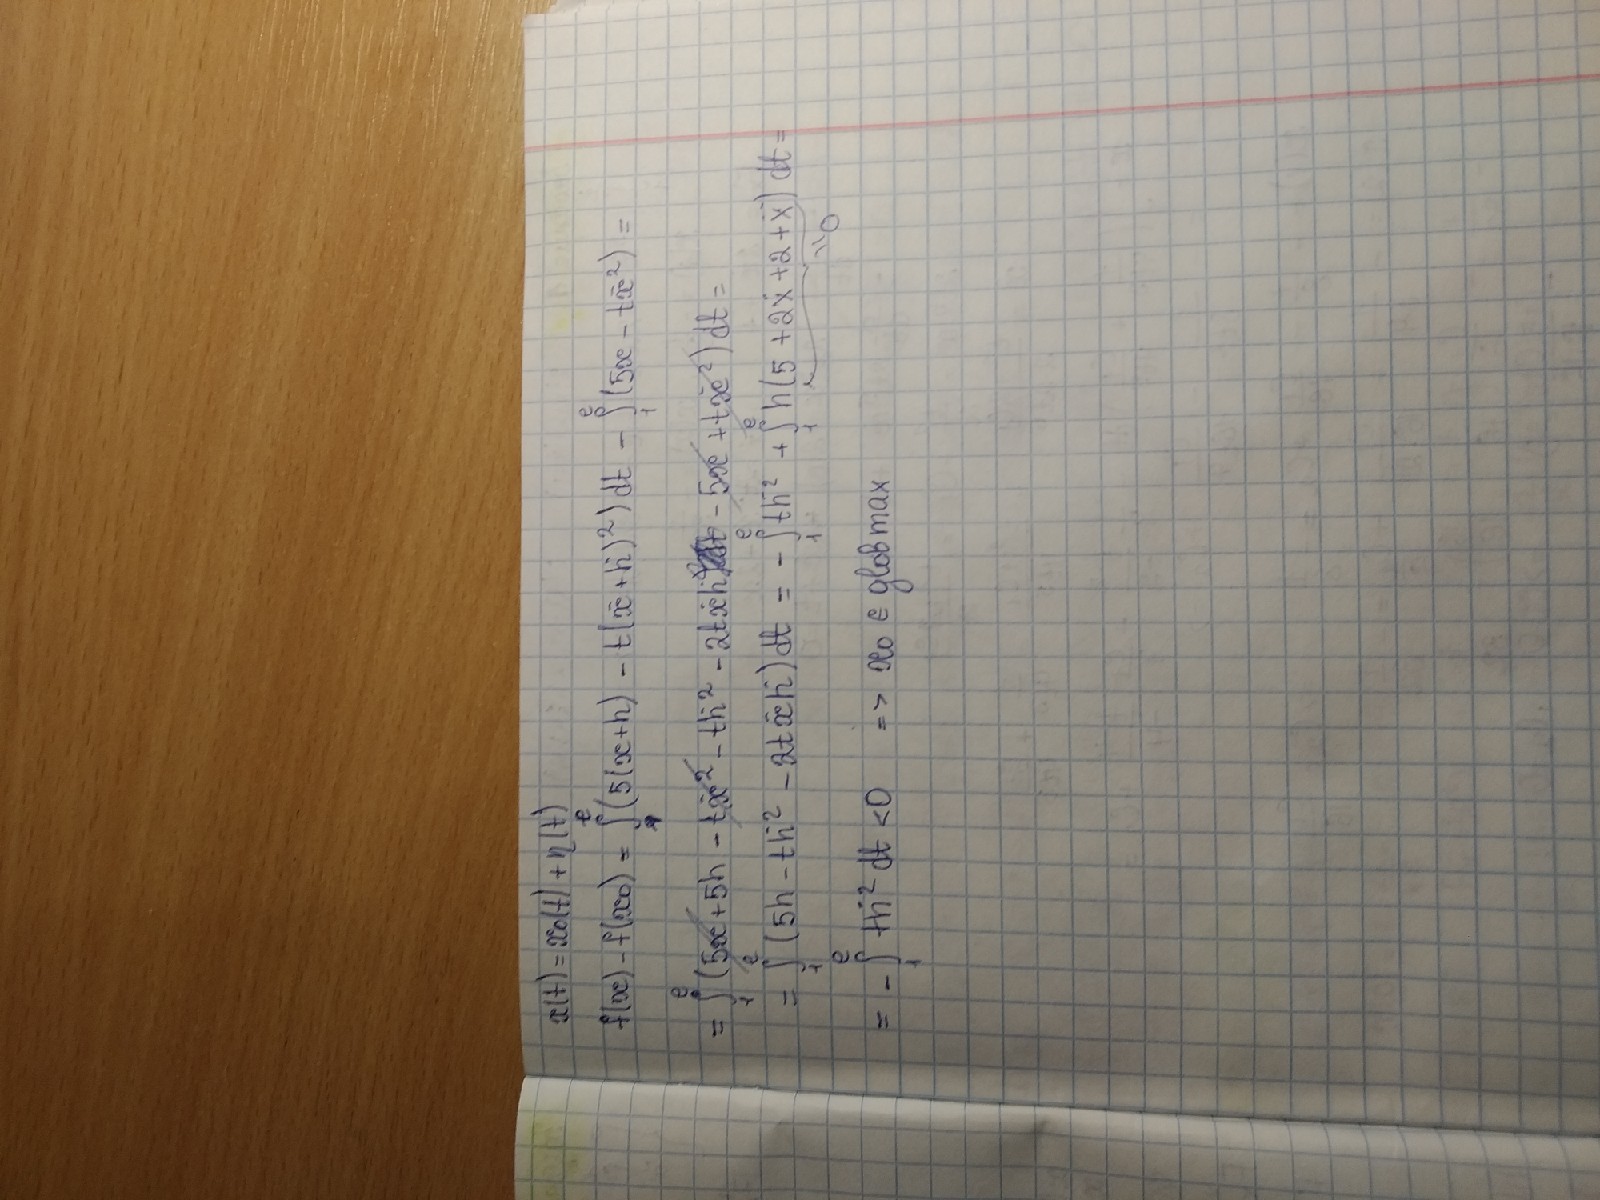 x(t) = x₀(t) + η(t)
f(x) - f(x₀) = ∫₁ᵉ (5(x+h) - t(ẋ+ḣ)²) dt - ∫₁ᵉ (5x - tẋ²) =
= ∫₁ᵉ (5x + 5h - tẋ² - tḣ² - 2tẋḣ - 5x + tẋ²) dt =
= ∫₁ᵉ (5h - tḣ² - 2tẋḣ) dt = - ∫₁ᵉ tḣ² + ∫₁ᵉ h(5 + 2ẋ + 2 + ẍ) dt =
= 0
= - ∫₁ᵉ tḣ² dt < 0 => x₀ ∈ glob max